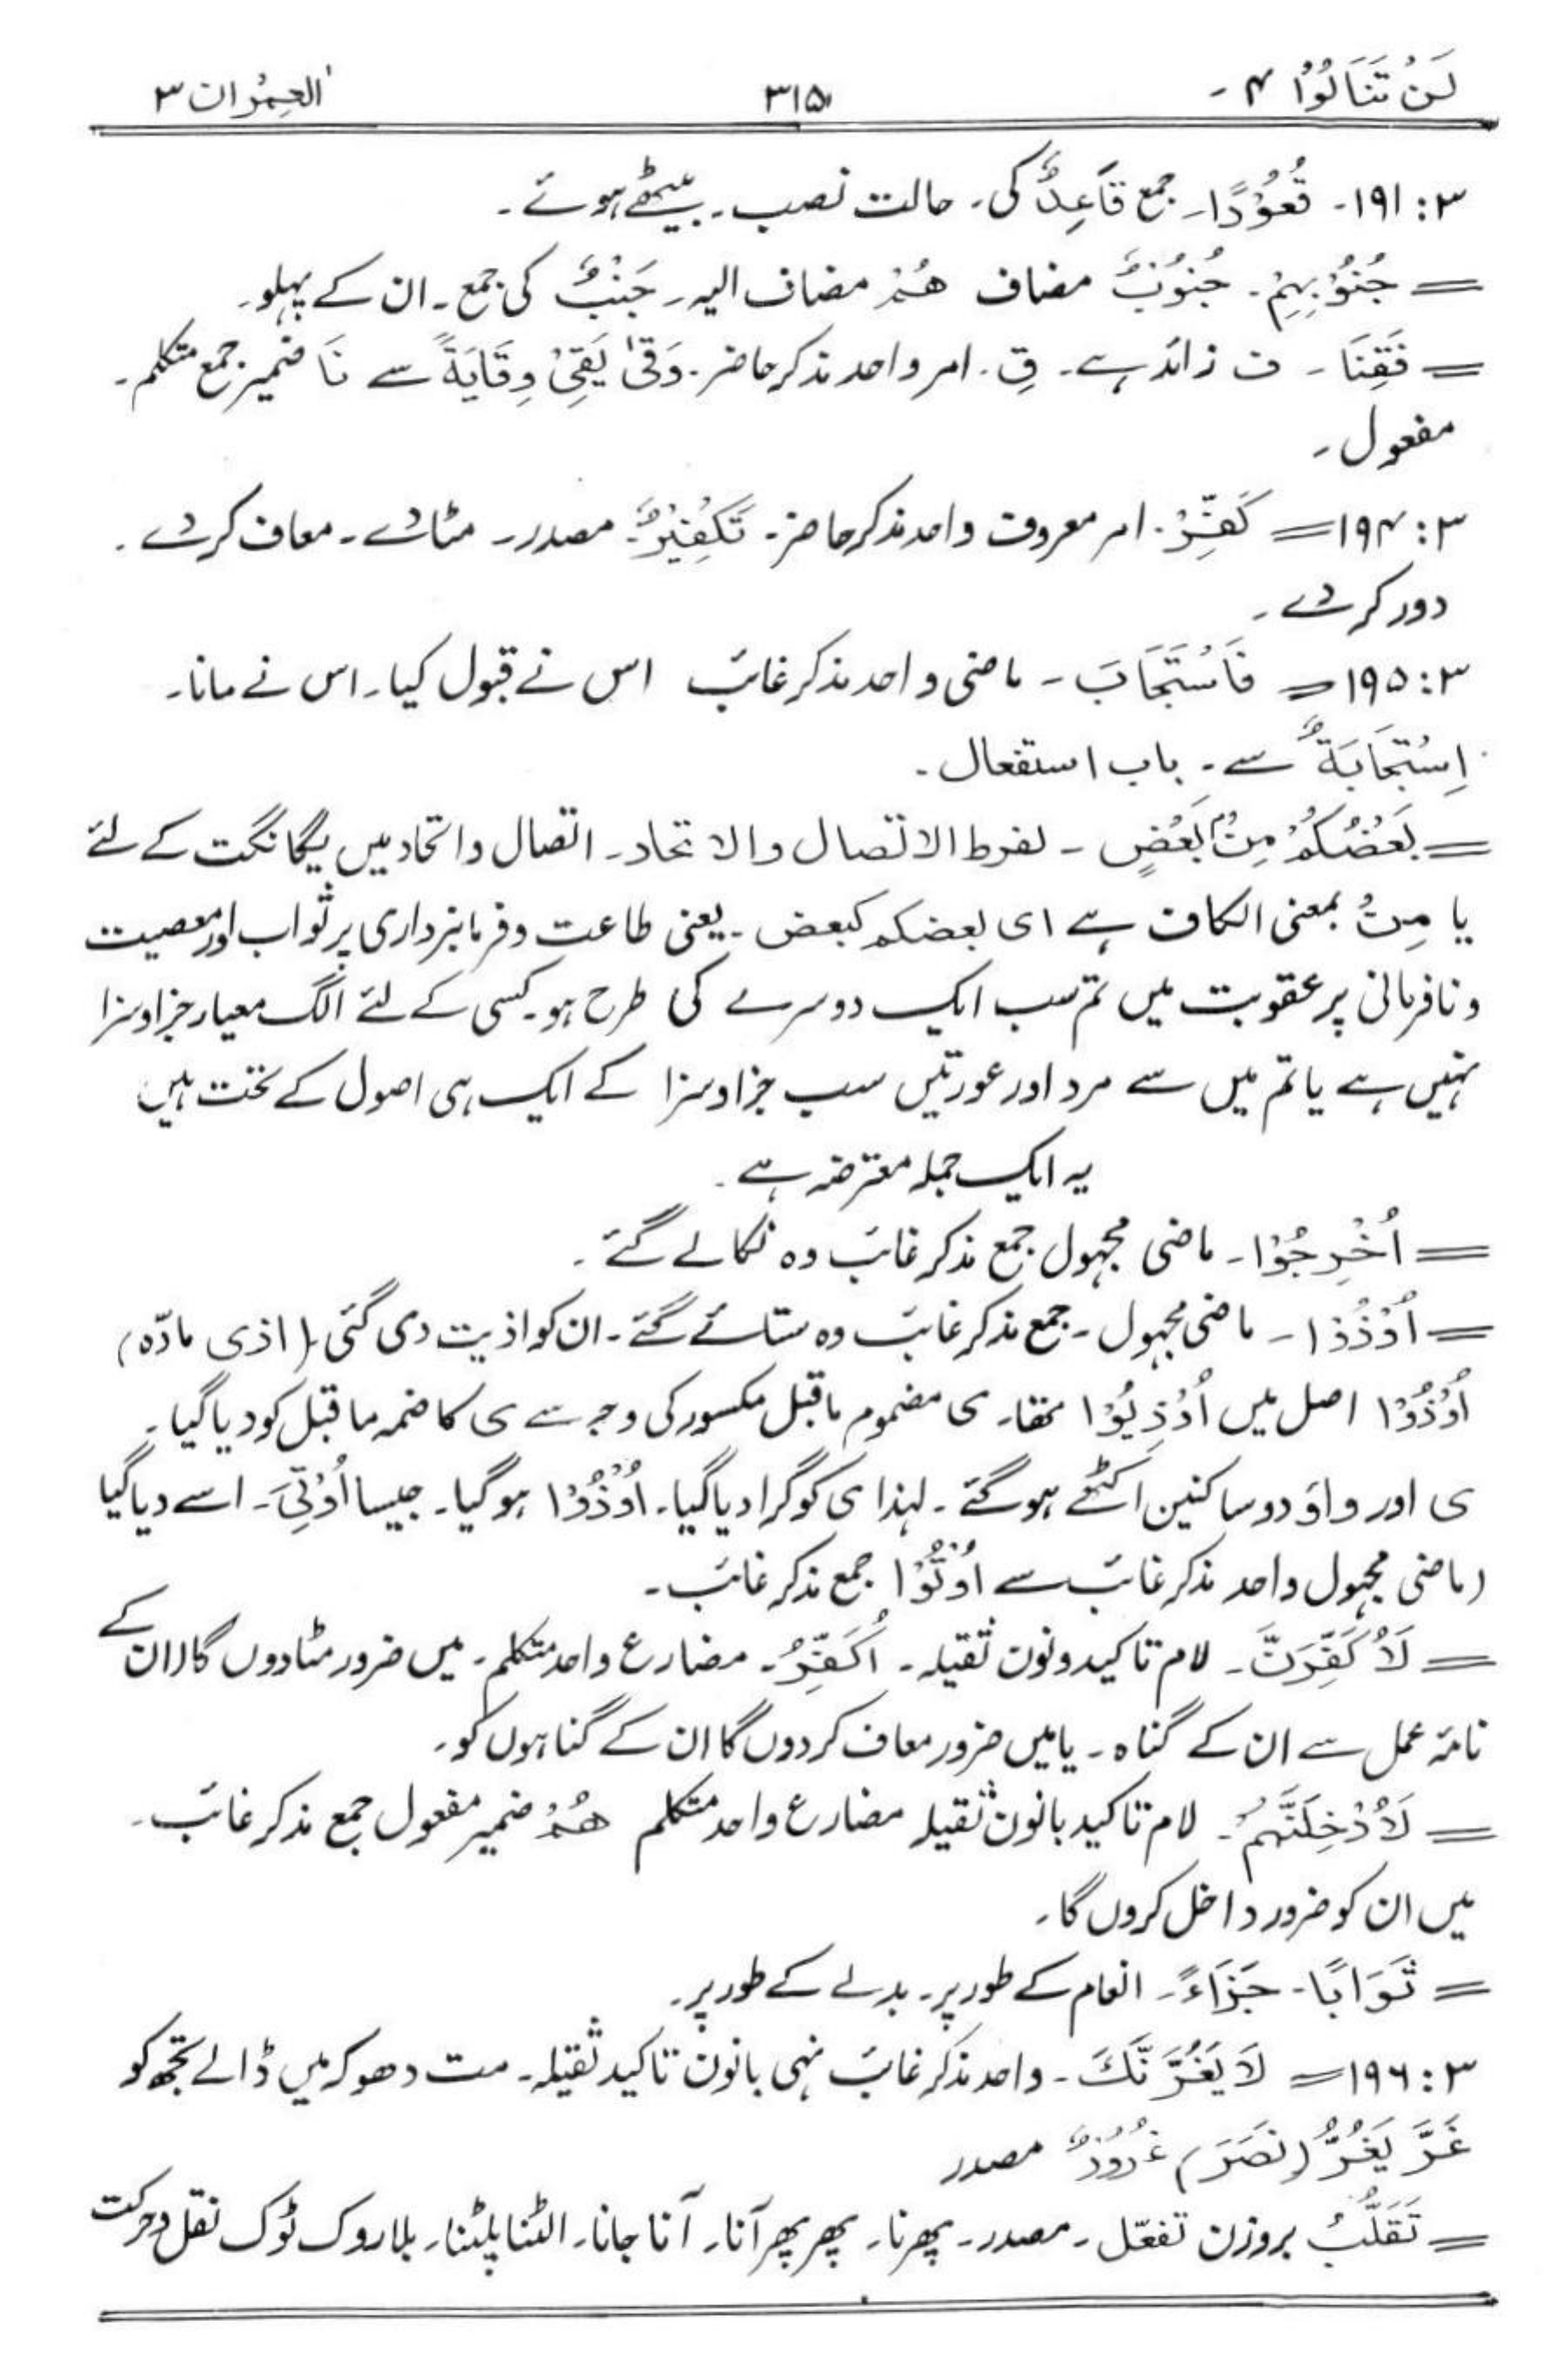 لَنْ تَنَالُوْا ۴ - ۳۱۵ اٰلعِمْرٰان ۳
۳: ۱۹۱ - قُعُوْدًا۔ جمع قَاعِدٌ کی۔ حالت نصب۔ بیٹھے ہوئے۔
= جُنُوْبِہِمْ۔ جُنُوْبٌ مضاف ھُمْ مضاف الیہ۔ جَنْبٌ کی جمع۔ ان کے پہلو۔
= فَقِنَا۔ ف زائد ہے۔ قِ۔ امر واحد مذکر حاضر۔ وَقٰی یَقِیْ وِقَایَۃً سے نَا ضمیر جمع متکلم۔
مفعول۔
۳: ۱۹۳ = کَفِّرْ۔ امر معروف واحد مذکر حاضر۔ تَکْفِیْرٌ۔ مصدر۔ مٹا دے۔ معاف کر دے۔
دور کر دے۔
۳: ۱۹۵ = فَاسْتَجَابَ۔ ماضی واحد مذکر غائب اس نے قبول کیا۔ اس نے مانا۔
اِسْتِجَابَۃٌ سے۔ باب استفعال۔
= بَعْضُکُمْ مِنْۢ بَعْضٍ۔ لفرط الاتصال والاتحاد۔ اتصال واتحاد میں یگانگت کے لئے
یا مِنْ بمعنی الکاف ہے ای بعضکم کبعض۔ یعنی طاعت و فرمانبرداری پر ثواب اور معصیت
و نافرمانی پر عقوبت میں تم سب ایک دوسرے کی طرح ہو۔ کسی کے لئے الگ معیار جزا و سزا
نہیں ہے یا تم میں سے مرد اور عورتیں سب جزا و سزا کے ایک ہی اصول کے تحت ہیں
یہ ایک جملہ معترضہ ہے۔
= اُخْرِجُوْا۔ ماضی مجہول جمع مذکر غائب وہ نکالے گئے۔
= اُوْذُوْا۔ ماضی مجہول۔ جمع مذکر غائب وہ ستائے گئے۔ ان کو اذیت دی گئی۔ (اذی مادّہ)
اُوْذُوْا اصل میں اُوْذِیُوْا تھا۔ ی مضموم ماقبل مکسور کی وجہ سے ی کا ضمہ ماقبل کو دیا گیا۔
ی اور واؤ دو ساکنین اکٹھے ہو گئے۔ لہذا ی کو گرا دیا گیا۔ اُوْذُوْا ہو گیا۔ جیسا اُوْتِیَ۔ اسے دیا گیا
(ماضی مجہول واحد مذکر غائب سے اُوْتُوْا جمع مذکر غائب۔
= لَاُکَفِّرَنَّ۔ لام تاکید و نون ثقیلہ۔ اُکَفِّرُ۔ مضارع واحد متکلم۔ میں ضرور مٹا دوں گا (ان کے
نامۂ عمل سے ان کے گناہ۔ یا میں ضرور معاف کر دوں گا ان کے گناہوں کو۔
= لَاُدْخِلَنَّہُمْ۔ لام تاکید بانون ثقیلہ مضارع واحد متکلم ھُمْ ضمیر مفعول جمع مذکر غائب۔
میں ان کو ضرور داخل کروں گا۔
= ثَوَابًا۔ جَزَاءً۔ انعام کے طور پر۔ بدلے کے طور پر۔
۳: ۱۹۶ = لَا یَغُرَّنَّکَ۔ واحد مذکر غائب نہی بانون تاکید ثقیلہ۔ مت دھوکہ میں ڈالے تجھ کو
غَرَّ یَغُرُّ (نَصَرَ) غُرُوْرٌ مصدر
= تَقَلُّبُ بروزن تفعّل۔ مصدر۔ پھرنا۔ پھر پھر آنا۔ آنا جانا۔ الٹنا پلٹنا۔ بلا روک ٹوک نقل و حرکت